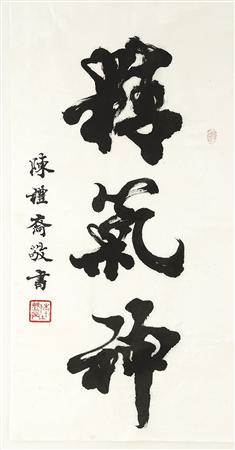 精氣神
陳禮裔敬書